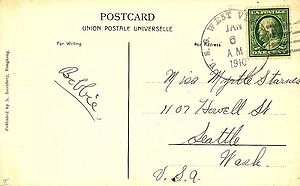 POSTCARD
UNION POSTALE UNIVERSELLE
For Writing.
For Address.
U.S.S. WEST V
JAN
6
AM
1910
U.S. POSTAGE
Bobbie.
Miss Myrtle Starnes
1107 Howell St
Seattle
Wash.
U.S.A.
Published by
Hongkong.